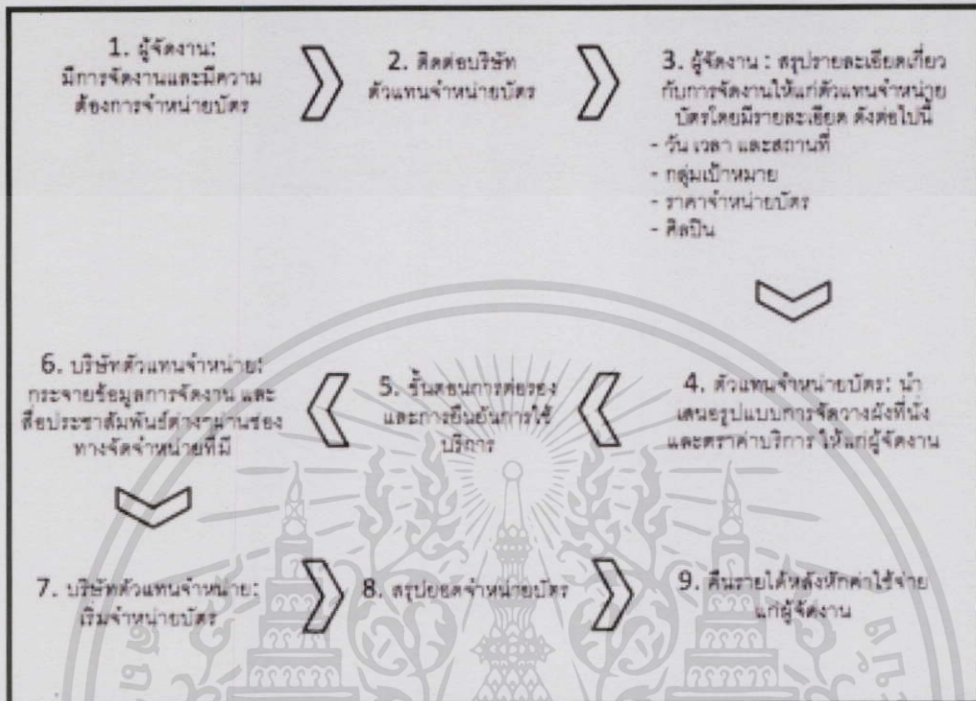 1. ผู้จัดงาน:
มีการจัดงานและมีความ
ต้องการจำหน่ายบัตร
2. ติดต่อบริษัท
ตัวแทนจำหน่ายบัตร
3. ผู้จัดงาน : สรุปรายละเอียดเกี่ยว
กับการจัดงานให้แก่ตัวแทนจำหน่าย
บัตรโดยมีรายละเอียด ดังต่อไปนี้
- วัน เวลา และสถานที่
- กลุ่มเป้าหมาย
- ราคาจำหน่ายบัตร
- ศิลปิน
4. ตัวแทนจำหน่ายบัตร: นำ
เสนอรูปแบบการจัดวางผังที่นั่ง
และตราค่าบริการ ให้แก่ผู้จัดงาน
5. ขั้นตอนการต่อรอง
และการยืนยันการใช้
บริการ
6. บริษัทตัวแทนจำหน่าย:
กระจายข้อมูลการจัดงาน และ
สื่อประชาสัมพันธ์ต่างๆผ่านช่อง
ทางจัดจำหน่ายที่มี
7. บริษัทตัวแทนจำหน่าย:
เริ่มจำหน่ายบัตร
8. สรุปยอดจำหน่ายบัตร
9. คืนรายได้หลังหักค่าใช้จ่าย
แก่ผู้จัดงาน